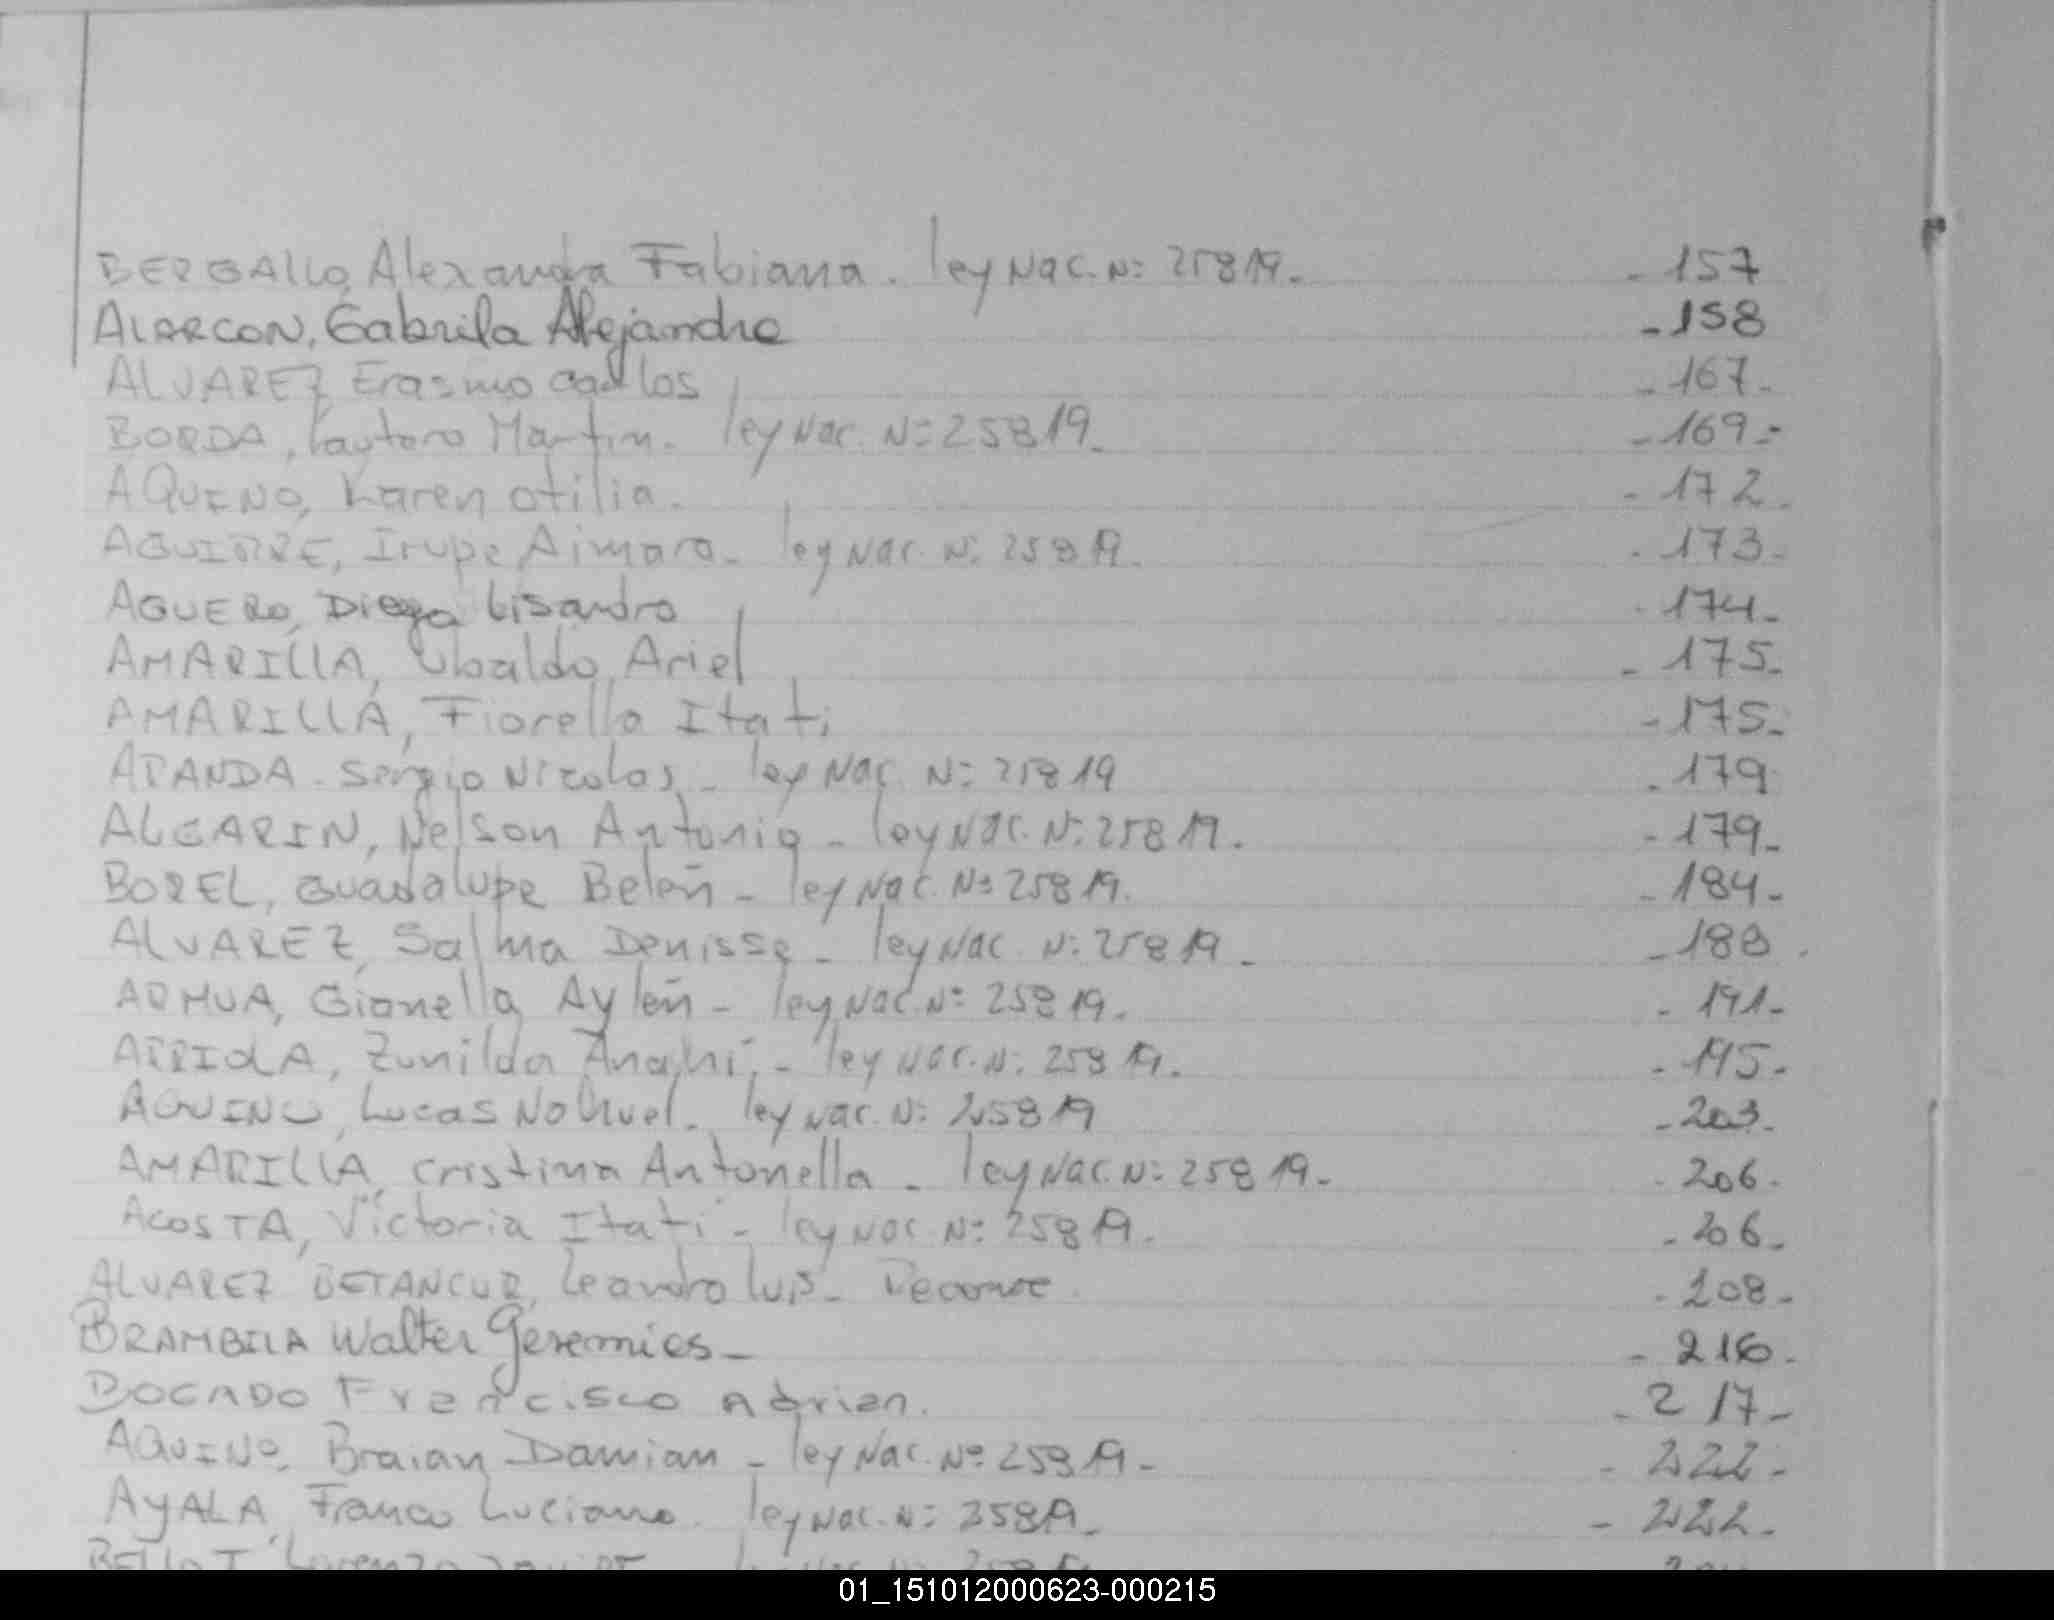 BERGALLO, Alexandra Fabiana. ley Nac. N: 25819. - 157
ALARCON, Gabrila Alejandra - 158
ALVAREZ, Erasmo Carlos - 167-
BORDA, Lautaro Martin. ley Nac. N: 25819. - 169.-
AQUINO, Karen Otilia. - 172.
AGUIRRE, Irupe Aimara - ley Nac. N: 25819. - 173-
AGUERO, Diego Lisandro - 174-
AMARILLA, Ubaldo Ariel - 175-
AMARILLA, Fiorella Itati - 175-
ARANDA - Sergio Nicolas - ley Nac. N: 25819 - 179
ALGARIN, Nelson Antonio - ley Nac. N: 25819. - 179-
BOREL, Guadalupe Belen - ley Nac. N: 25819. - 184-
ALVAREZ, Salma Denisse - ley Nac. N: 25819 - - 188.
ARMUA, Gianella Aylen - ley Nac. N: 25819. - 191-
ARRIOLA, Zunilda Anahí. - ley Nac. N: 25819. - 195-
AQUINO, Lucas Nahuel. ley Nac. N: 25819 - 203.
AMARILLA, Cristina Antonella - ley Nac. N: 25819 - - 206.
ACOSTA, Victoria Itati - ley Nac. N: 25819. - 206-
ALVAREZ BETANCUR, Leandro Luis - - 208-
BRAMBILA Walter Geremias - - 216-
BOCADO Francisco Adrian. - 217-
AQUINO, Braian Damian - ley Nac. Nº 25819 - - 222-
AYALA, Franco Luciano. ley Nac. N: 25819 - - 222.
01_151012000623-000215